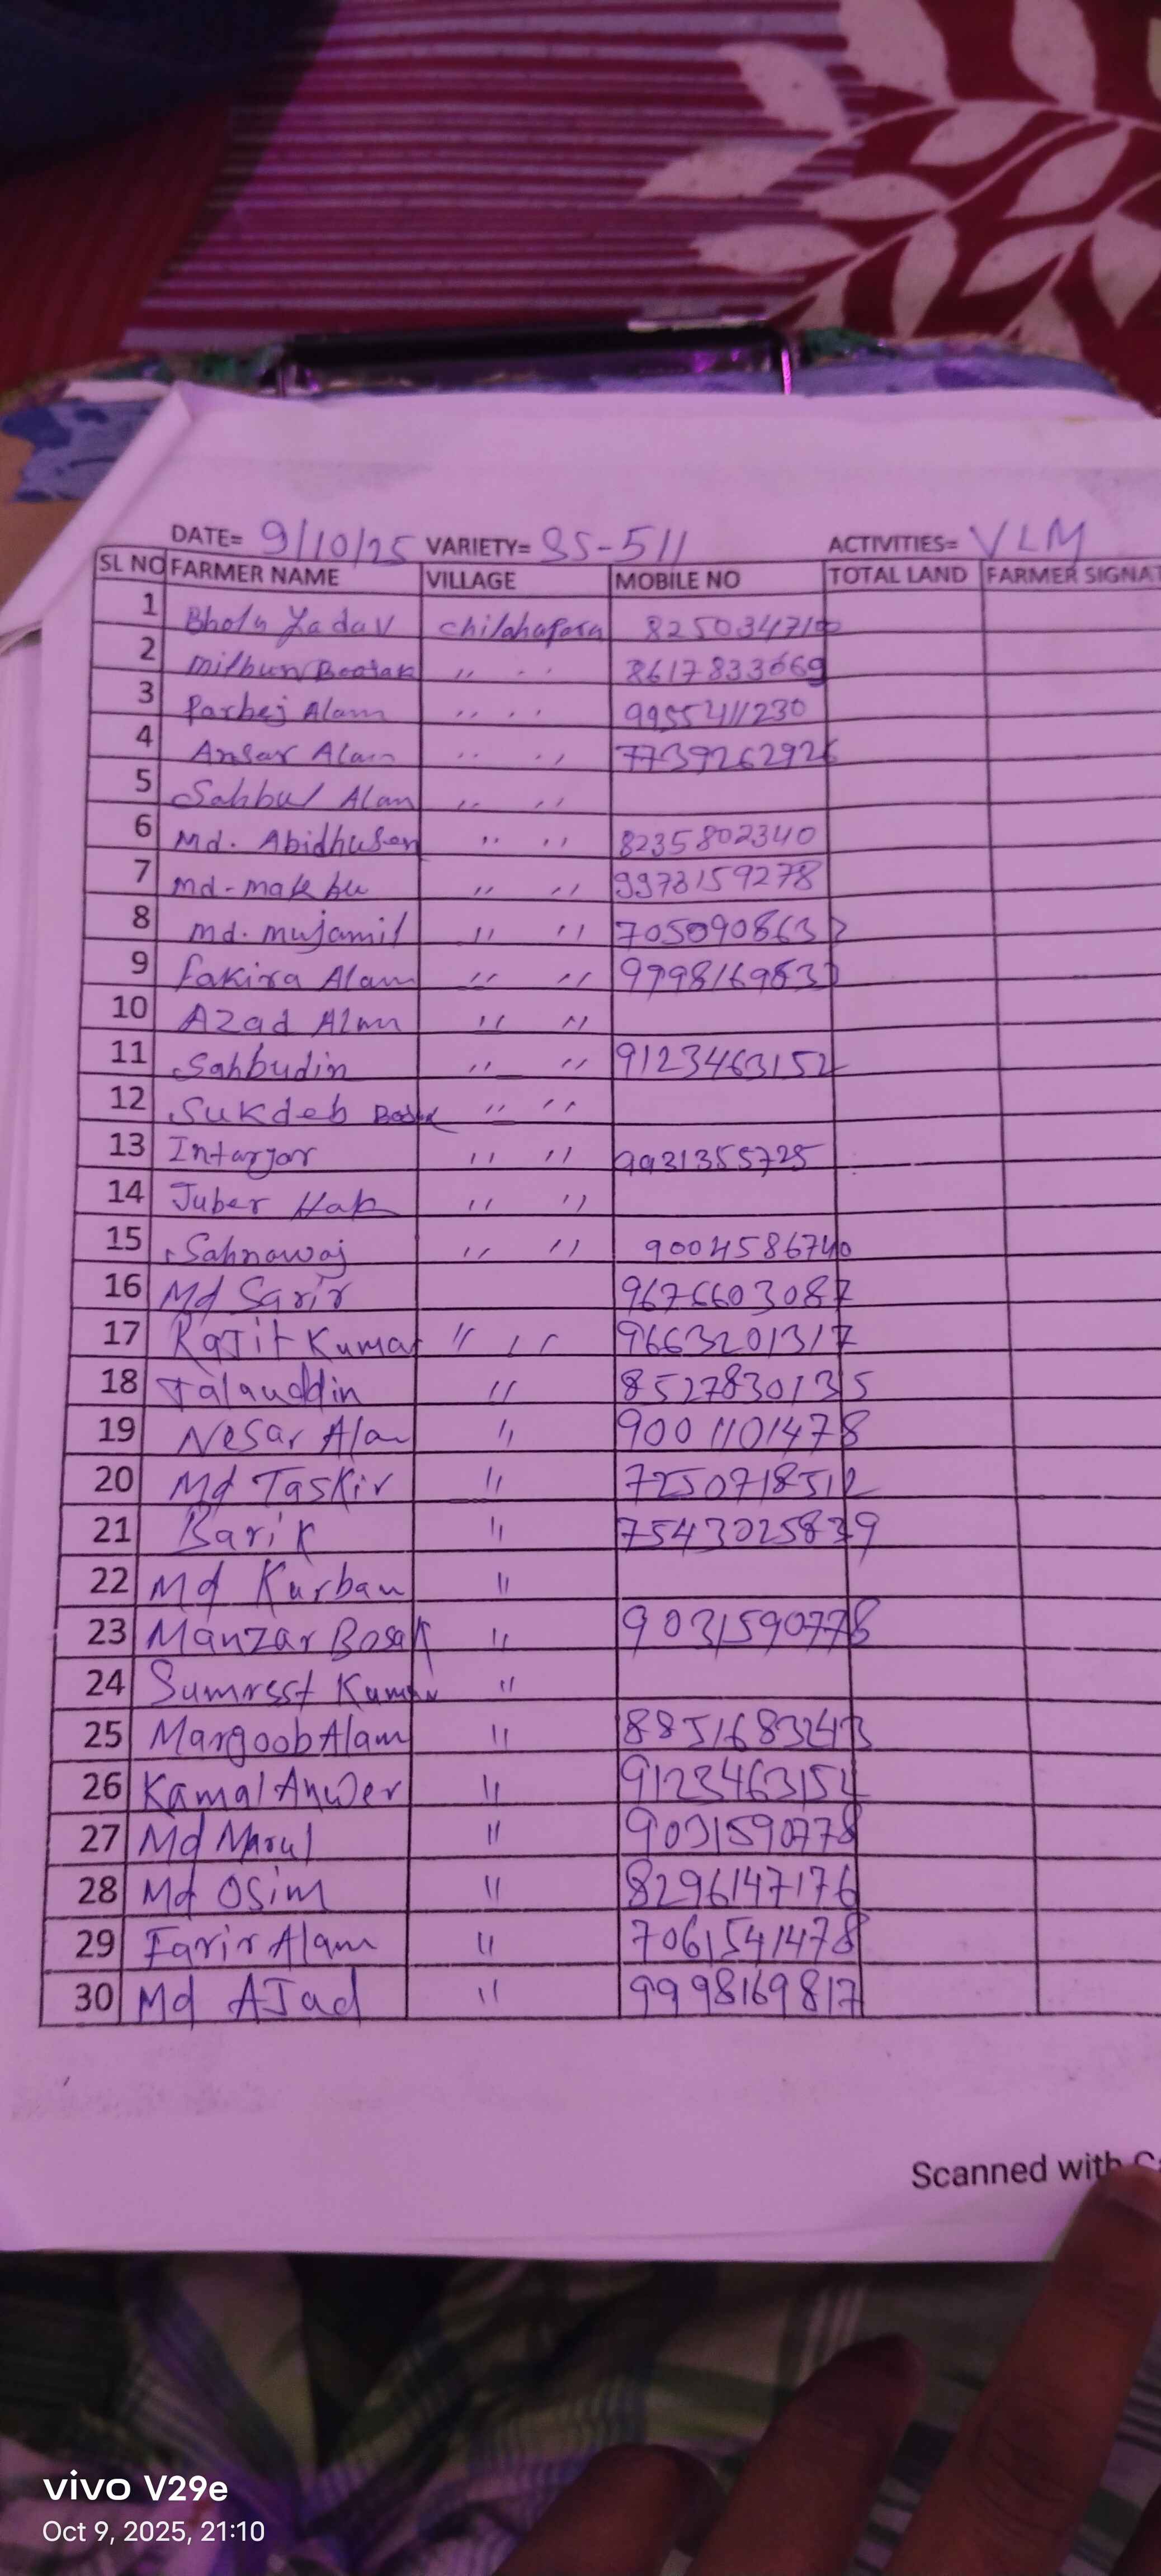 DATE= 9/10/25 VARIETY= SS-511 ACTIVITIES= VLM
SL NO FARMER NAME VILLAGE MOBILE NO TOTAL LAND FARMER SIGNAT
1 Bholu Yadav 82503471
2 8617833669
3 Parbej Alam 〃 〃 9955411230
4 Ansar Alam 〃 〃 7739262926
5 Sahbul Alam 〃 〃
6 Md. Abidhusen 〃 〃 8235802340
7 md-makbu 〃 〃 9973159278
8 md. mujamil 〃 〃 705090863
9 fakira Alam 〃 〃 999816983
10 Azad Alam 〃 〃
11 Sahbudin 〃 〃 9123463152
12 Sukdeb 〃 〃
13 Intarjar 〃 〃 9931355725
14 Juber Hak 〃 〃
15 Sahnawaj 〃 〃 9004586740
16 Md Sarir 9676603087
17 Rajit Kumar 〃 〃 9663201317
18 Jalauddin 〃 8527830135
19 Nesar Alam 〃 9001101478
20 Md Taskir 〃 7250718512
21 Barik 〃 7543025839
22 Md Kurban 〃
23 Manzar Bosak 〃 9031590778
24 〃
25 Margoob Alam 〃 8851683243
26 Kamal Anwer 〃 9123463152
27 Md 〃 9031590778
28 Md Osim 〃 8296147176
29 Farir Alam 〃 7061541478
30 Md AJad 〃 9998169817
Scanned with
vivo V29e
Oct 9, 2025, 21:10